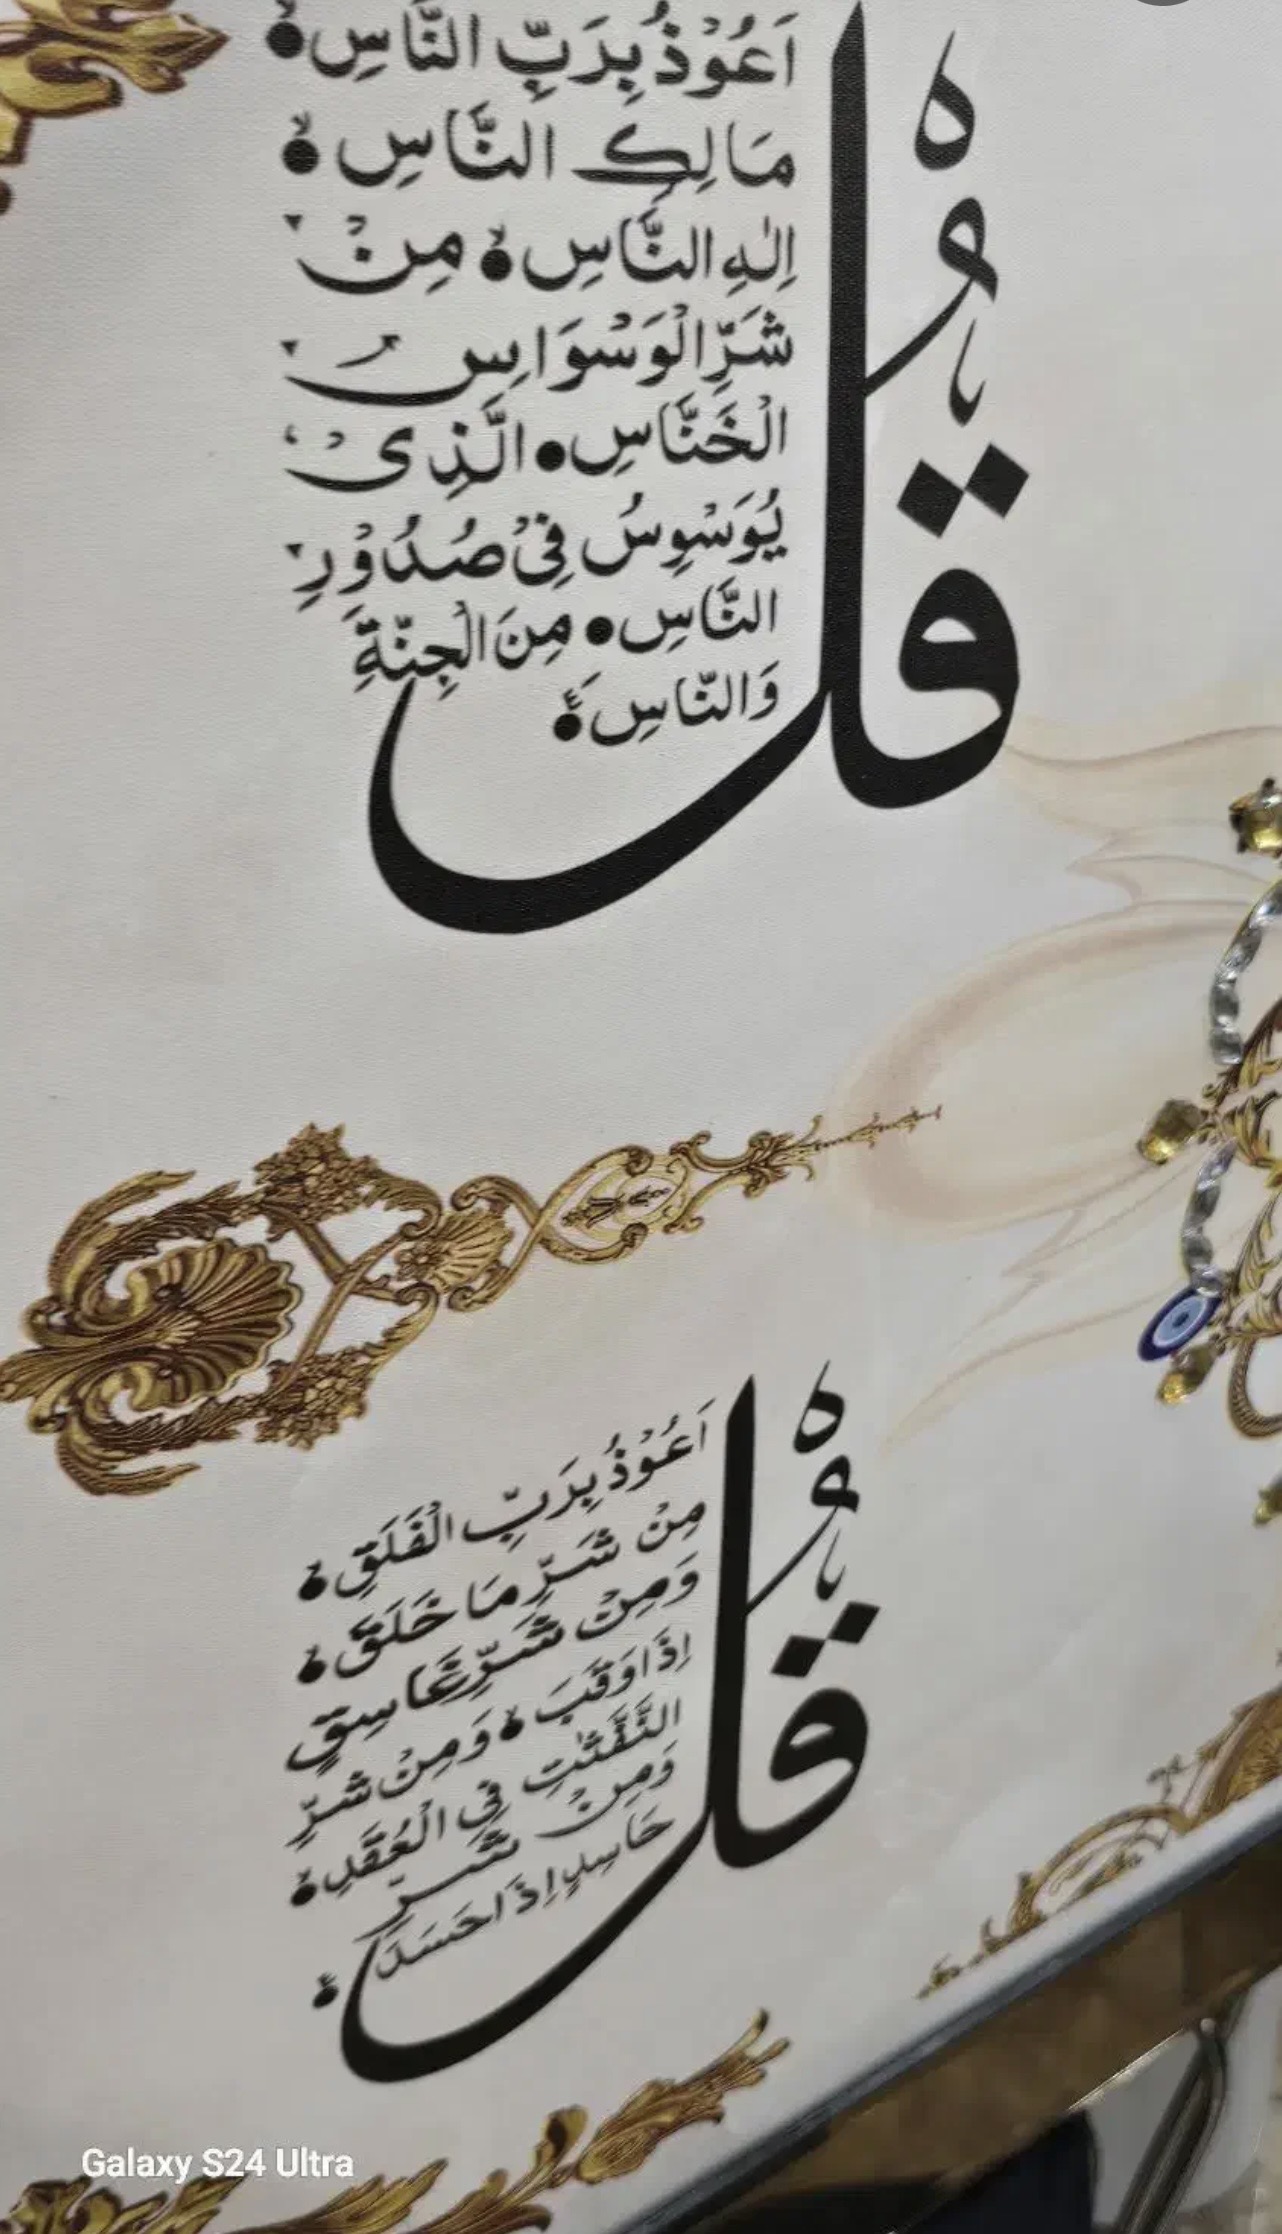 قُلْ
اَعُوْذُ بِرَبِّ النَّاسِ
مَالِكِ النَّاسِ
اِلٰهِ النَّاسِ مِنْ
شَرِّ الْوَسْوَاسِ
الْخَنَّاسِ الَّذِى
يُوَسْوِسُ فِىْ صُدُوْرِ
النَّاسِ مِنَ الْجِنَّةِ
وَالنَّاسِ
قُلْ
اَعُوْذُ بِرَبِّ الْفَلَقِ
مِنْ شَرِّ مَا خَلَقَ
وَمِنْ شَرِّ غَاسِقٍ
اِذَا وَقَبَ وَمِنْ شَرِّ
النَّفّٰثٰتِ فِى الْعُقَدِ
وَمِنْ شَرِّ
حَاسِدٍ اِذَا حَسَدَ
Galaxy S24 Ultra